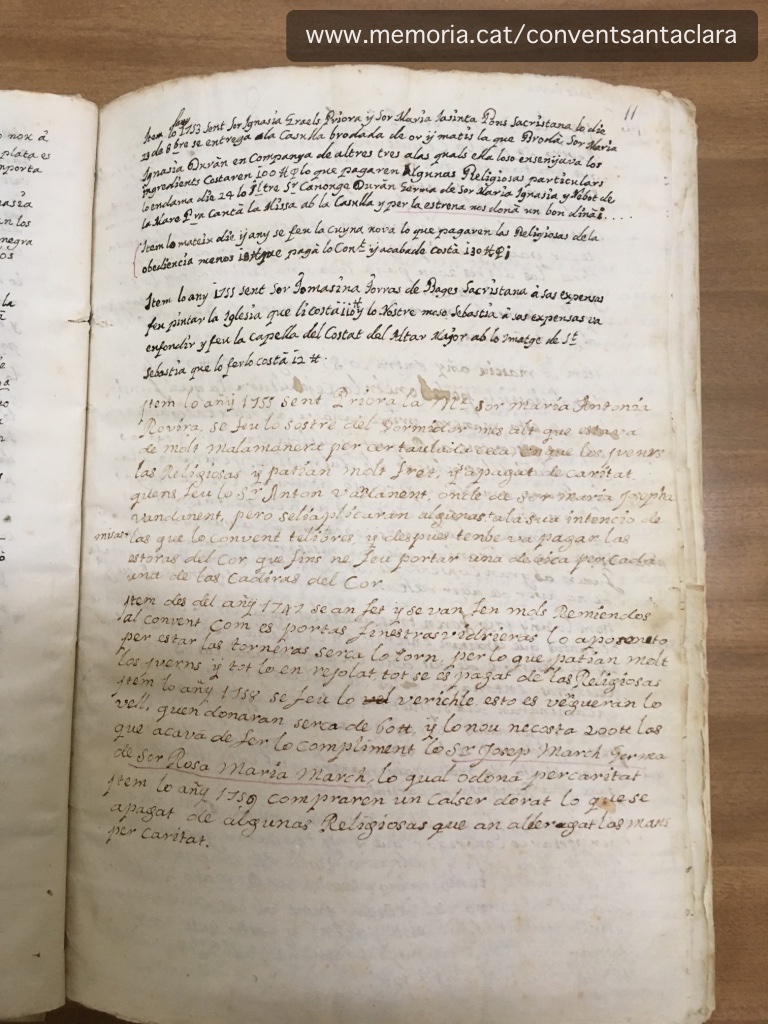 www.memoria.cat/conventsantaclara
11
Item lo any 1753 sent Sor Ignasia Graels Priora y Sor Maria Iasinta Pons Sacristana lo die
23 de 8bre se entrega la Casulla brodada de or y matis la que Broda Sor Maria
Ignasia Duràn en Companya de altres tres a las quals ella loso ensenyava los
ingredients Costaren 100 lo que pagaren Algunas Religiosas particulars
lo endama die 24 lo Iltre Sr Canonge Duràn Germa de Sor Maria Ignasia y Nebot de
la Mare Pra Cantà la Missa ab la Casulla y per la estrena nos donà un bon dinà
Item lo mateix die y any se feu la cuyna nova lo que pagaren las Religiosas de la
obediencia menos que pagà lo Cont y acabada costà 130
Item lo any 1755 sent Sor Tomasina Torras de Bages Sacristana â sas expensas
feu pintar la Iglesia que li costà y lo Nostre moso Sebastia â sas expensas va
enfondir y feu la capella del Costat del Altar Major ab lo Imatge de St
Sebastia que lo ferlo costà 12 tt.
Item lo añy 1755 sent Priora la Me Sor Maria Antonia
Rovira, se feu lo sostre del Dormidor mes alt que estava
de molt Malamanera per ser taulade que los jverns
las Religiosas y patian molt fret, y a pagat de caritat
quens feu lo Sr Anton Vadanent, oncle de Sor Maria Josepha
Vandanent, pero seli aplicaran algunas a la sua intencio de
misas
las que lo convent te llibres, y despues tenbe va pagar las
estoras del Cor que fins ne feu portar una de per cada
una de las Cadiras del Cor
Item des del añy 1747 se an fet y se van fen mols Remiendos
al convent com es portas finestras vidrieras lo aposento
per estar las torneras serca lo torn, per lo que patian molt
los jverns y tot lo en rejolat, tot se es pagat de las Religiosas
Item lo añy 1758 se feu lo vel verichle esto es vengueran lo
vell, quen donaran serca de 60tt, y lo nou ne costa 200tt las
que acavà de fer lo compliment lo Sr Josep March Germa
de Sor Rosa Maria March, lo qual ô dona per caritat
Item lo añy 1759 compraren un Calser dorat lo que se
apagat de algunas Religiosas que an allargat las mans
per caritat.